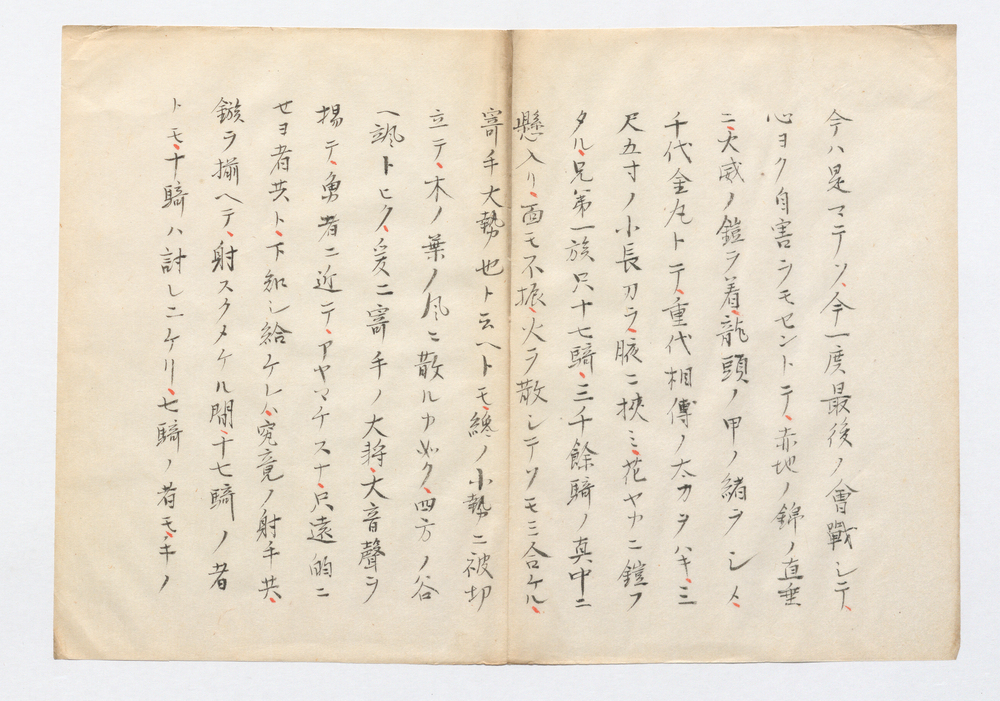 今ハ是マテソ、今一度最後ノ會戰シテ、
心ヨク自害ヲモセントテ、赤地ノ錦ノ直垂
ニ、火威ノ鎧ヲ着、龍頭ノ甲ノ緒ヲシメ、
千代金丸トテ、重代相傳ノ太刀ヲハキ、三
尺五寸ノ小長刀ヲ、腋ニ挾ミ、花ヤカニ鎧フ
タル、兄第一族只十七騎、三千餘騎ノ真中ニ
懸入リ、面モ不振、火ヲ散シテソモミ合ケル、
寄手大勢也ト云ヘトモ、纔ノ小勢ニ被切
立テ、木ノ葉ノ風ニ散ルカ如ク、四方ノ谷
ヘ颯トヒク、爰ニ寄手ノ大將、大音聲ヲ
揚テ、勇者ニ近テ、アヤマチスナ、只遠的ニ
せヨ者共ト、下知シ給ケレハ、究竟ノ射手共、
鏃ヲ揃ヘテ、射スクメケル間、十七騎ノ者
トモ、十騎ハ討レニケリ、七騎ノ者モ、キノ